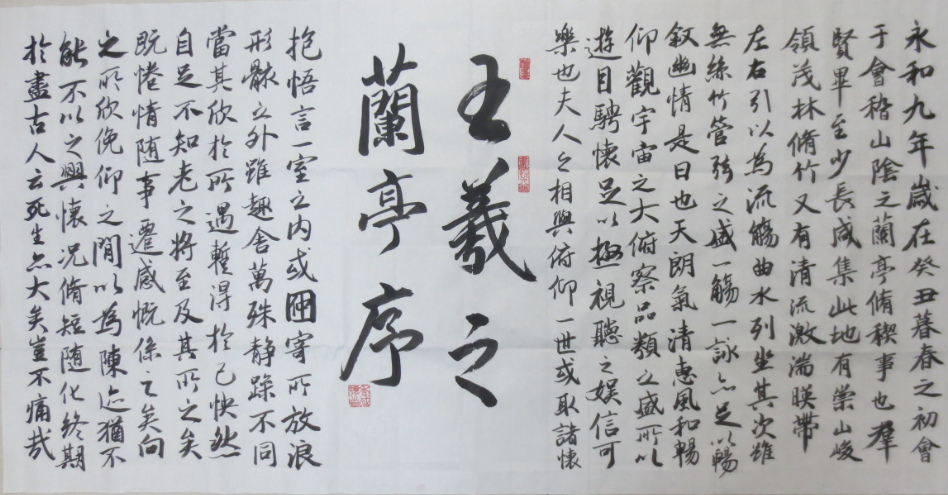 永和九年歲在癸丑暮春之初會
于會稽山陰之蘭亭脩稧事也羣
賢畢至少長咸集此地有崇山峻
領茂林脩竹又有清流激湍暎帶
左右引以為流觴曲水列坐其次雖
無絲竹管弦之盛一觴一詠亦足以暢
叙幽情是日也天朗氣清惠風和暢
仰觀宇宙之大俯察品類之盛所以
遊目騁懷足以極視聽之娛信可
樂也夫人之相與俯仰一世或取諸懷
王羲之
蘭亭序
抱悟言一室之内或因寄所放浪
形骸之外雖趣舍萬殊静躁不同
當其欣於所遇暫得於己快然
自足不知老之將至及其所之矣
既惓情随事遷感慨係之矣向
之所欣俛仰之間以為陳迹猶不
能不以之興懷況脩短随化終期
於盡古人云死生亦大矣豈不痛哉